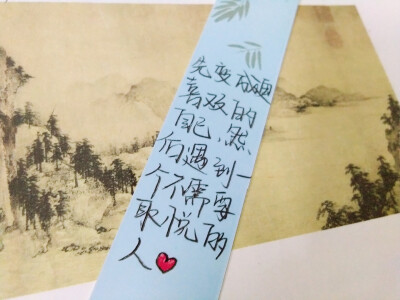 先变成更
喜欢的
自己,然
后遇到一
个不需要
取悦的
人